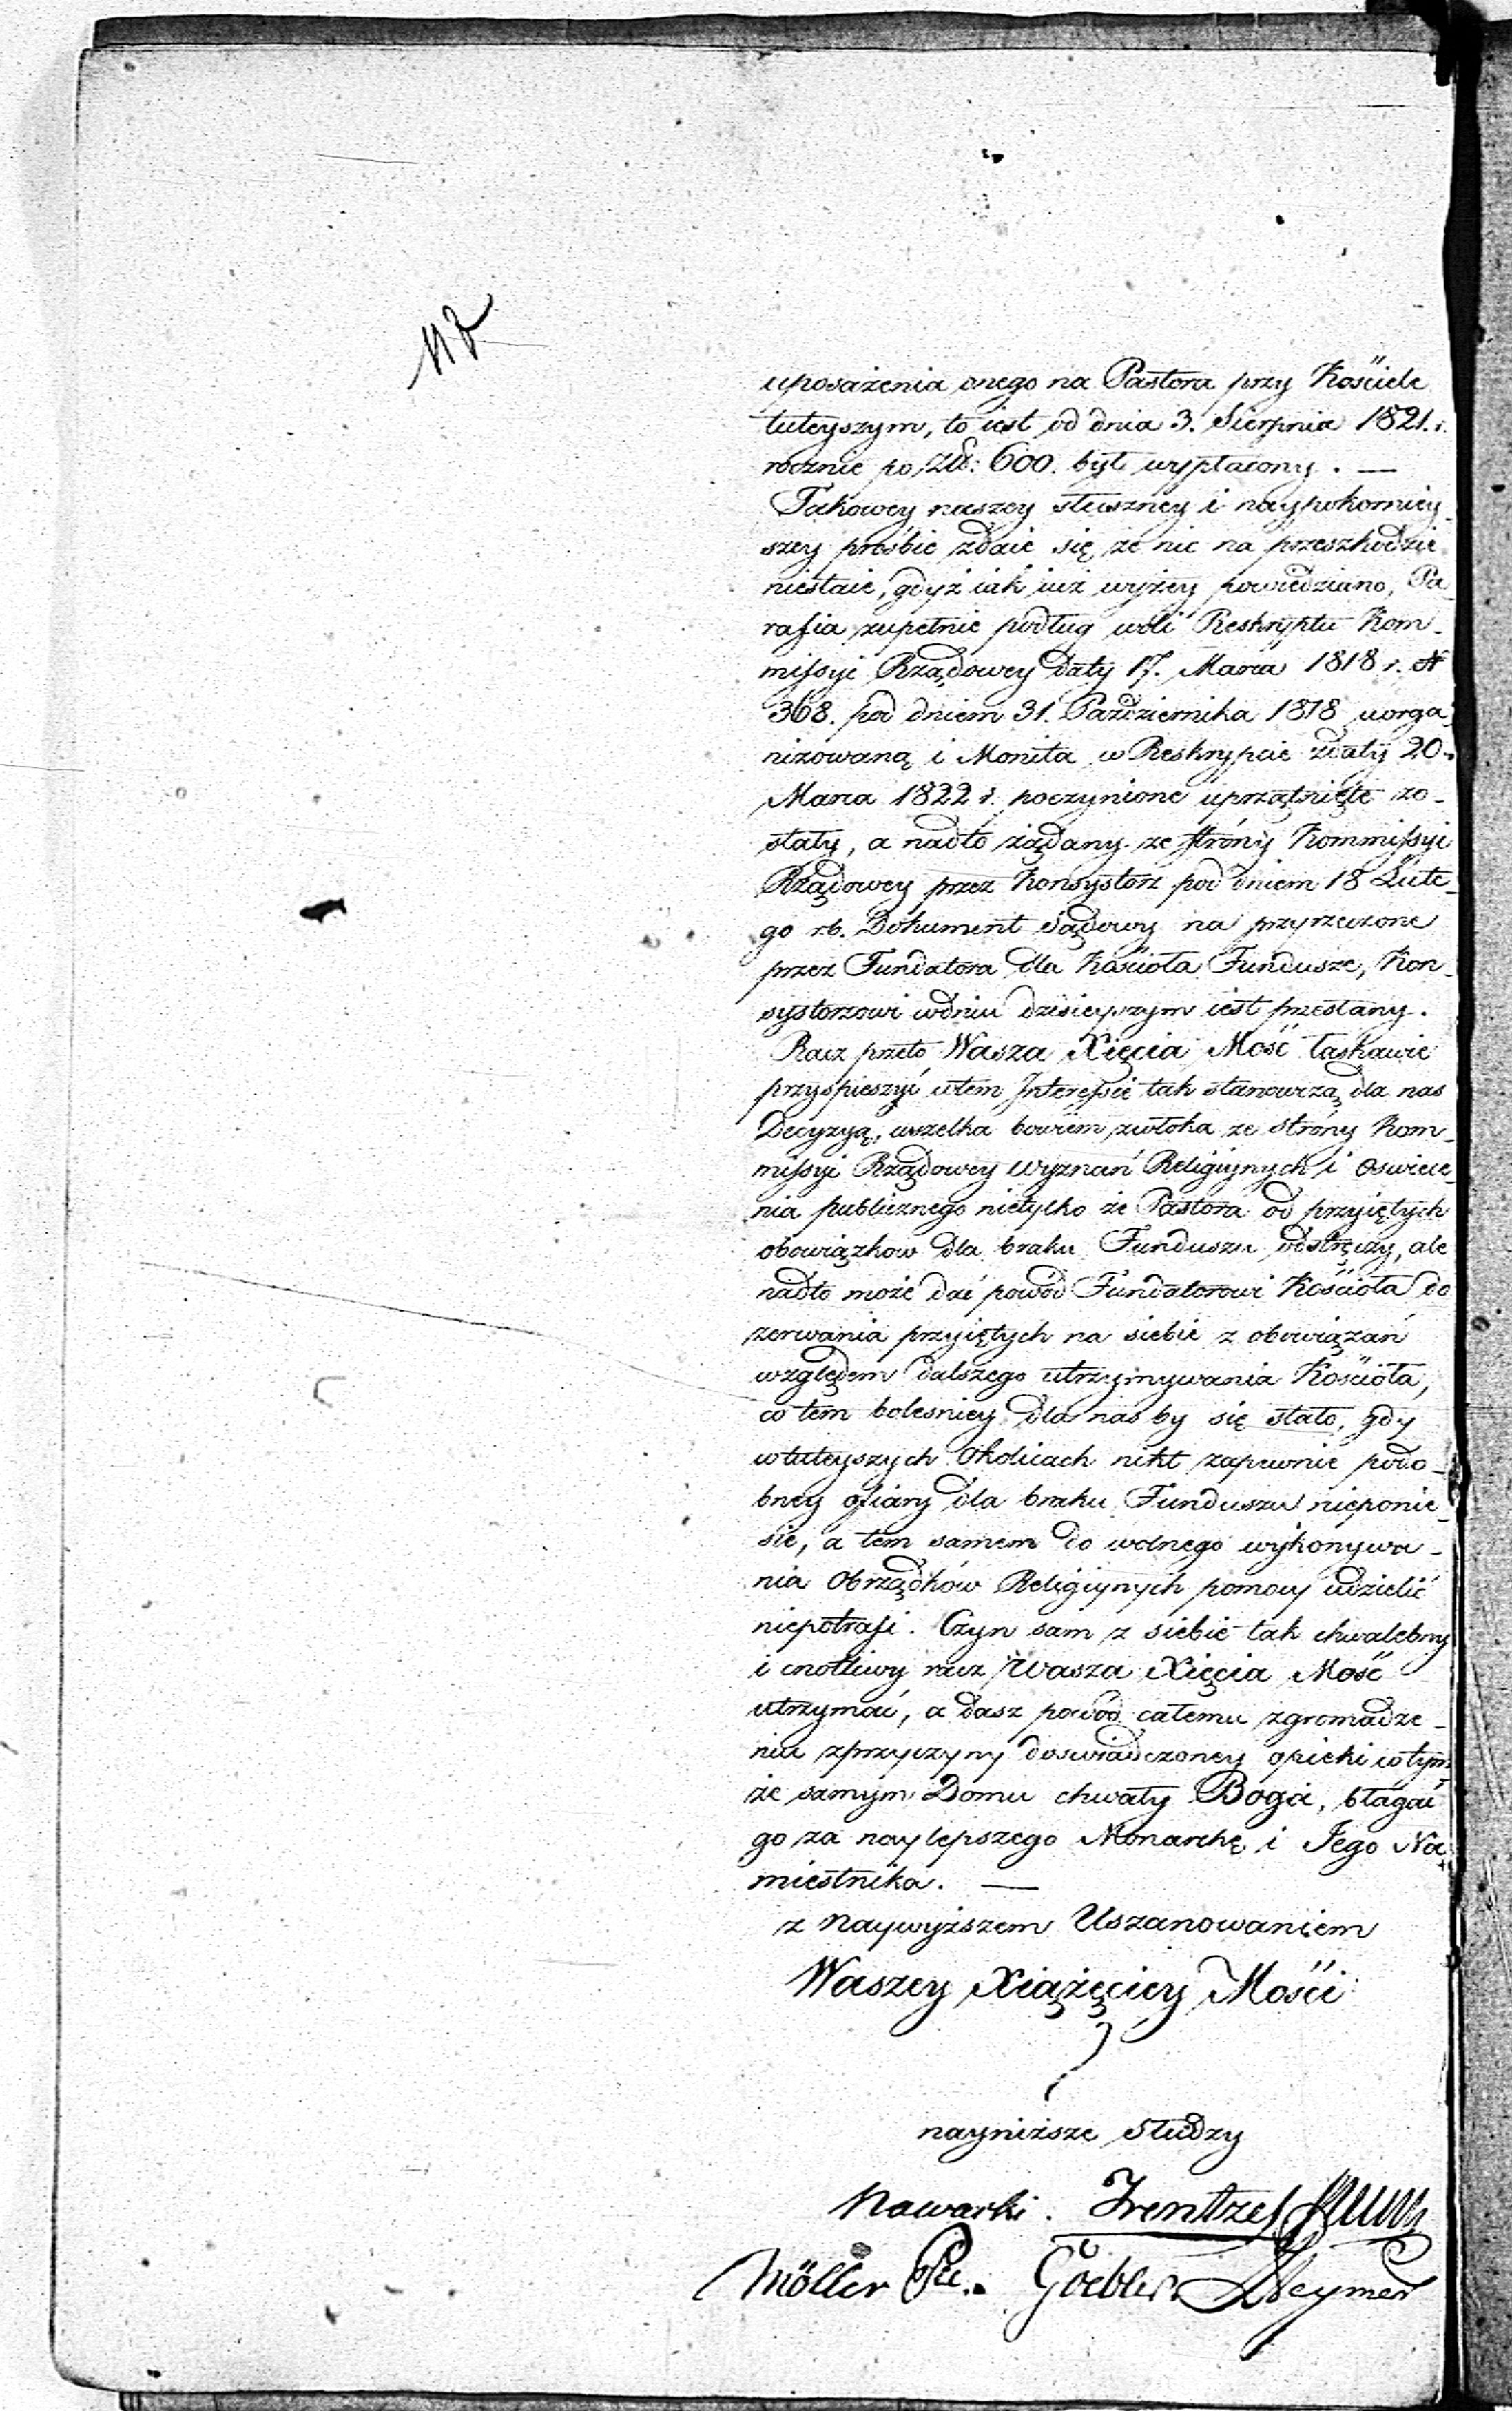 112
uposażenia onego na Pastora przy Kościele
tuteyszym, to iest od dnia 3. Sierpnia 1821. r.
rocznie po Złł: 600. był wypłacony. —
Takowey naszey słuszney i naypokorniey_
szey prośbie zdaie się, że nic na przeszkodzie
niestaie, gdyż iak iuż wyżey powiedziano, Pa_
rafia zupełnie podług woli Reskryptu Kom_
missyi Rządowey daty 17. Marca 1818 r. N
368. pod dniem 31. Pazdziernika 1818 uorga_
nizowaną i Monita w Reskrypcie z daty 20.
Marca 1822 r. poczynione uprzątnięte zo_
stały, a nadto żądany ze strony Kommissyi
Rządowey przez Konsystorz pod dniem 18 Lute_
go r.b. Dokument Sądowy na przyrzeczone
przez Fundatora dla Kościoła Fundusze, Kon_
systorzowi w dniu dzisieyszym iest przesłany.
Racz przeto Wasza Xięcia Mość łaskawie
przyspieszyć w tem Interessie tak stanowczą dla nas
Decyzyą, wszelka bowiem zwłoka ze strony Kom_
missyi Rządowey Wyznań Religiynych i Oswiece_
nia publicznego nietylko że Pastora od przyiętych
obowiązkow dla braku Funduszu odstręczy, ale
nadto może dać powód Fundatorowi Kościoła do
zerwania przyiętych na siebie z obowiązań
względem dalszego utrzymywania Kościoła,
co tem bolesniey dla nas by się stało, gdy
w tuteyszych Okolicach nikt zapewnie podo_
bney ofiary dla braku Funduszu nieponie_
sie, a tem samem do wolnego wykonywa_
nia Obrządków Religiynych pomocy udzielić
niepotrafi. Czyn sam z siebie tak chwalebny
i cnotliwy racz Wasza Xięcia Mość
utrzymać, a dasz powód całemu zgromadze_
niu zprzyczyny doswiadczoney opieki w tym_
że samym Domu chwały Boga, błagać
go za naylepszego Monarchę i Jego Na_
miestnika. —
z Naywyższem Uszanowaniem
Waszey Xiążęciey Mości
nayniższe Słudzy
Nawarki. Frentzel
Möller Goebler Neymer